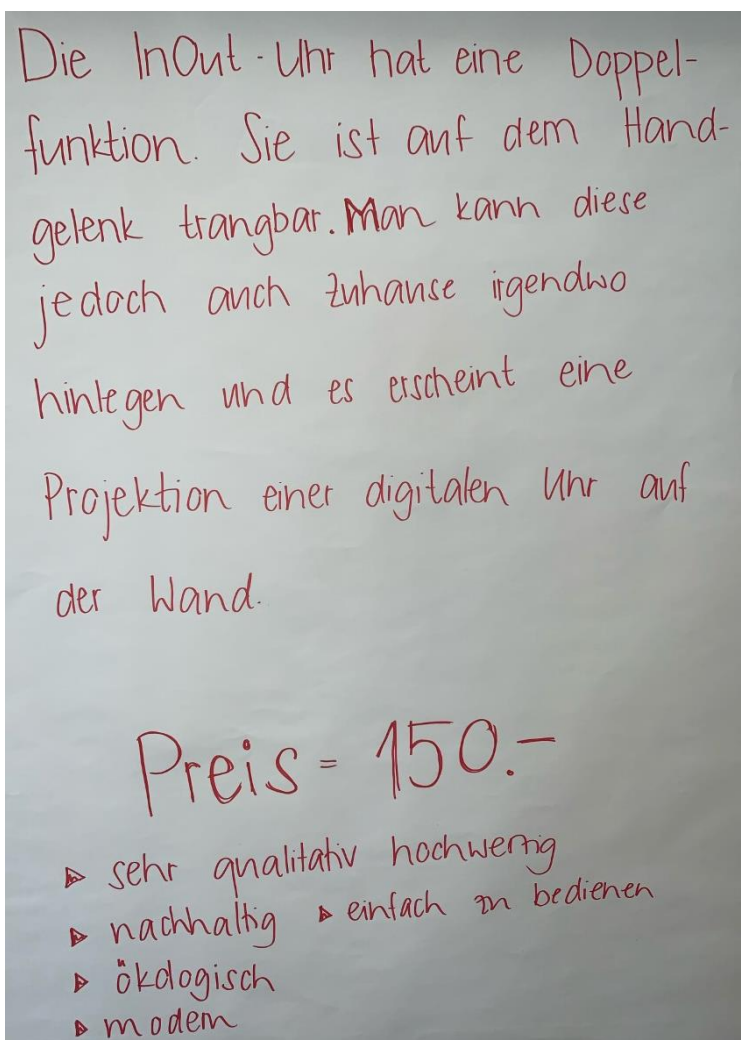 Die InOut-Uhr hat eine Doppel-
funktion. Sie ist auf dem Hand-
gelenk trangbar. Man kann diese
jedoch auch zuhause irgendwo
hinlegen und es erscheint eine
Projektion einer digitalen Uhr auf
der Wand.
Preis = 150.-
▷ sehr qualitativ hochwertig
▷ nachhaltig ▷ einfach zu bedienen
▷ ökologisch
▷ modern